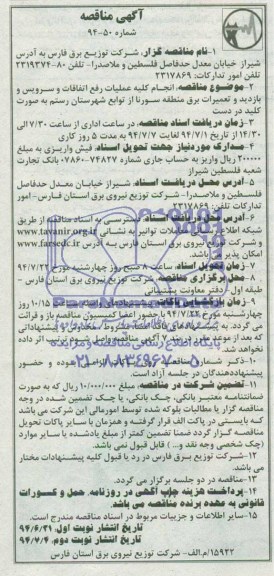 آگهی مناقصه
شماره ۵۰-۹۴
۱-نام مناقصه گزار، شرکت توزیع برق فارس به آدرس
شیراز خیابان معدل حدفاصل فلسطین و ملاصدرا- تلفن ۸۰-۲۳۱۹۳۷۴
تلفن امور تدارکات: ۲۳۱۷۸۶۹
۲-موضوع مناقصه، انجام کلیه عملیات رفع اتفاقات و سرویس و
بازدید و تعمیرات برق منطقه سورنا از توابع شهرستان رستم به صورت
کلید در دست
۳-زمان دریافت اسناد مناقصه، در ساعت اداری از ساعت ۷/۳۰ الی
۱۴/۳۰ از تاریخ ۹۴/۷/۱ لغایت ۹۴/۷/۷ به مدت ۵ روز کاری
۴-مدارک موردنیاز جهت تحویل اسناد، فیش واریزی به مبلغ
۲۰۰۰۰۰ ریال واریز به حساب جاری شماره ۰۷۸۶۰-۷۴۸۲۷ بانک تجارت
شعبه فلسطین شیراز
۵-آدرس محل دریافت اسناد، شیراز خیابان معدل حدفاصل
فلسطین و ملاصدرا- شرکت توزیع نیروی برق استان فارس- امور
تدارکات تلفن: ۲۳۱۷۸۶۹
۶-آدرس دسترسی به اسناد مناقصه از طریق
شبکه معاملات توانیر به نشانی www.tavanir.org.ir
و شرکت توزیع نیروی برق استان فارس به آدرس www.farsedc.ir
امکان پذیر
۷-زمان تحویل اسناد، ساعت ۸ صبح روز چهارشنبه مورخ ۹۴/۷/۲۲
۸-محل برگزاری مناقصه، شرکت توزیع نیروی برق استان فارس-
طبقه اول- دفتر معاونت پشتیبانی
۹-زمان بازگشایی پاکات، ساعت ۱۰/۱۵ روز
چهارشنبه مورخ ۹۴/۷/۲۲ با حضور اعضا کمیسیون مناقصه باز و قرائت
می گردد. به پیشنهادهای فاقد امضا، مشروط، مخدوش و پیشنهاداتی
که بعد از موعد مقرر در بند ۷ آگهی مناقصه واصل شود ترتیب اثر داده
نخواهد شد.
۱۰-ذکر شماره مناقصه روی پاکات الزامی بوده و حضور
پیشنهاددهندگان در جلسه آزاد است.
۱۱-تضمین شرکت در مناقصه، مبلغ ۱۰/۰۰۰/۰۰۰ ریال که به صورت
ضمانتنامه معتبر بانکی، چک بانکی، یا چک تضمین شده در وجه
مناقصه گزار یا مطالبات بلوکه شده توسط امورمالی این شرکت می باشد
که بایستی در پاکت الف قرار گرفته و همزمان با سایر پاکات تحویل
مناقصه گزار گردد ضمنا تضمین کمتر از مبلغ یادشده یا سایر موارد
(چک شخصی وجه نقد و...) قابل قبول نمی باشد.
۱۲-شرکت توزیع برق فارس در رد یا قبول کلیه پیشنهادات مختار
می باشد.
۱۳-مناقصه در دو جلسه برگزار می گردد.
۱۴-پرداخت هزینه چاپ آگهی در روزنامه، حمل و کسورات
قانونی به عهده برنده مناقصه می باشد.
۱۵-سایر اطلاعات و جزییات مربوط در اسناد مناقصه مندرج است.
تاریخ انتشار نوبت اول، ۹۴/۶/۳۱
تاریخ انتشار نوبت دوم، ۹۴/۷/۴
۱۵۹۲۲/م.الف- شرکت توزیع نیروی برق استان فارس
۰۲۱-۸۸۳۴۹۶۷۰-۵